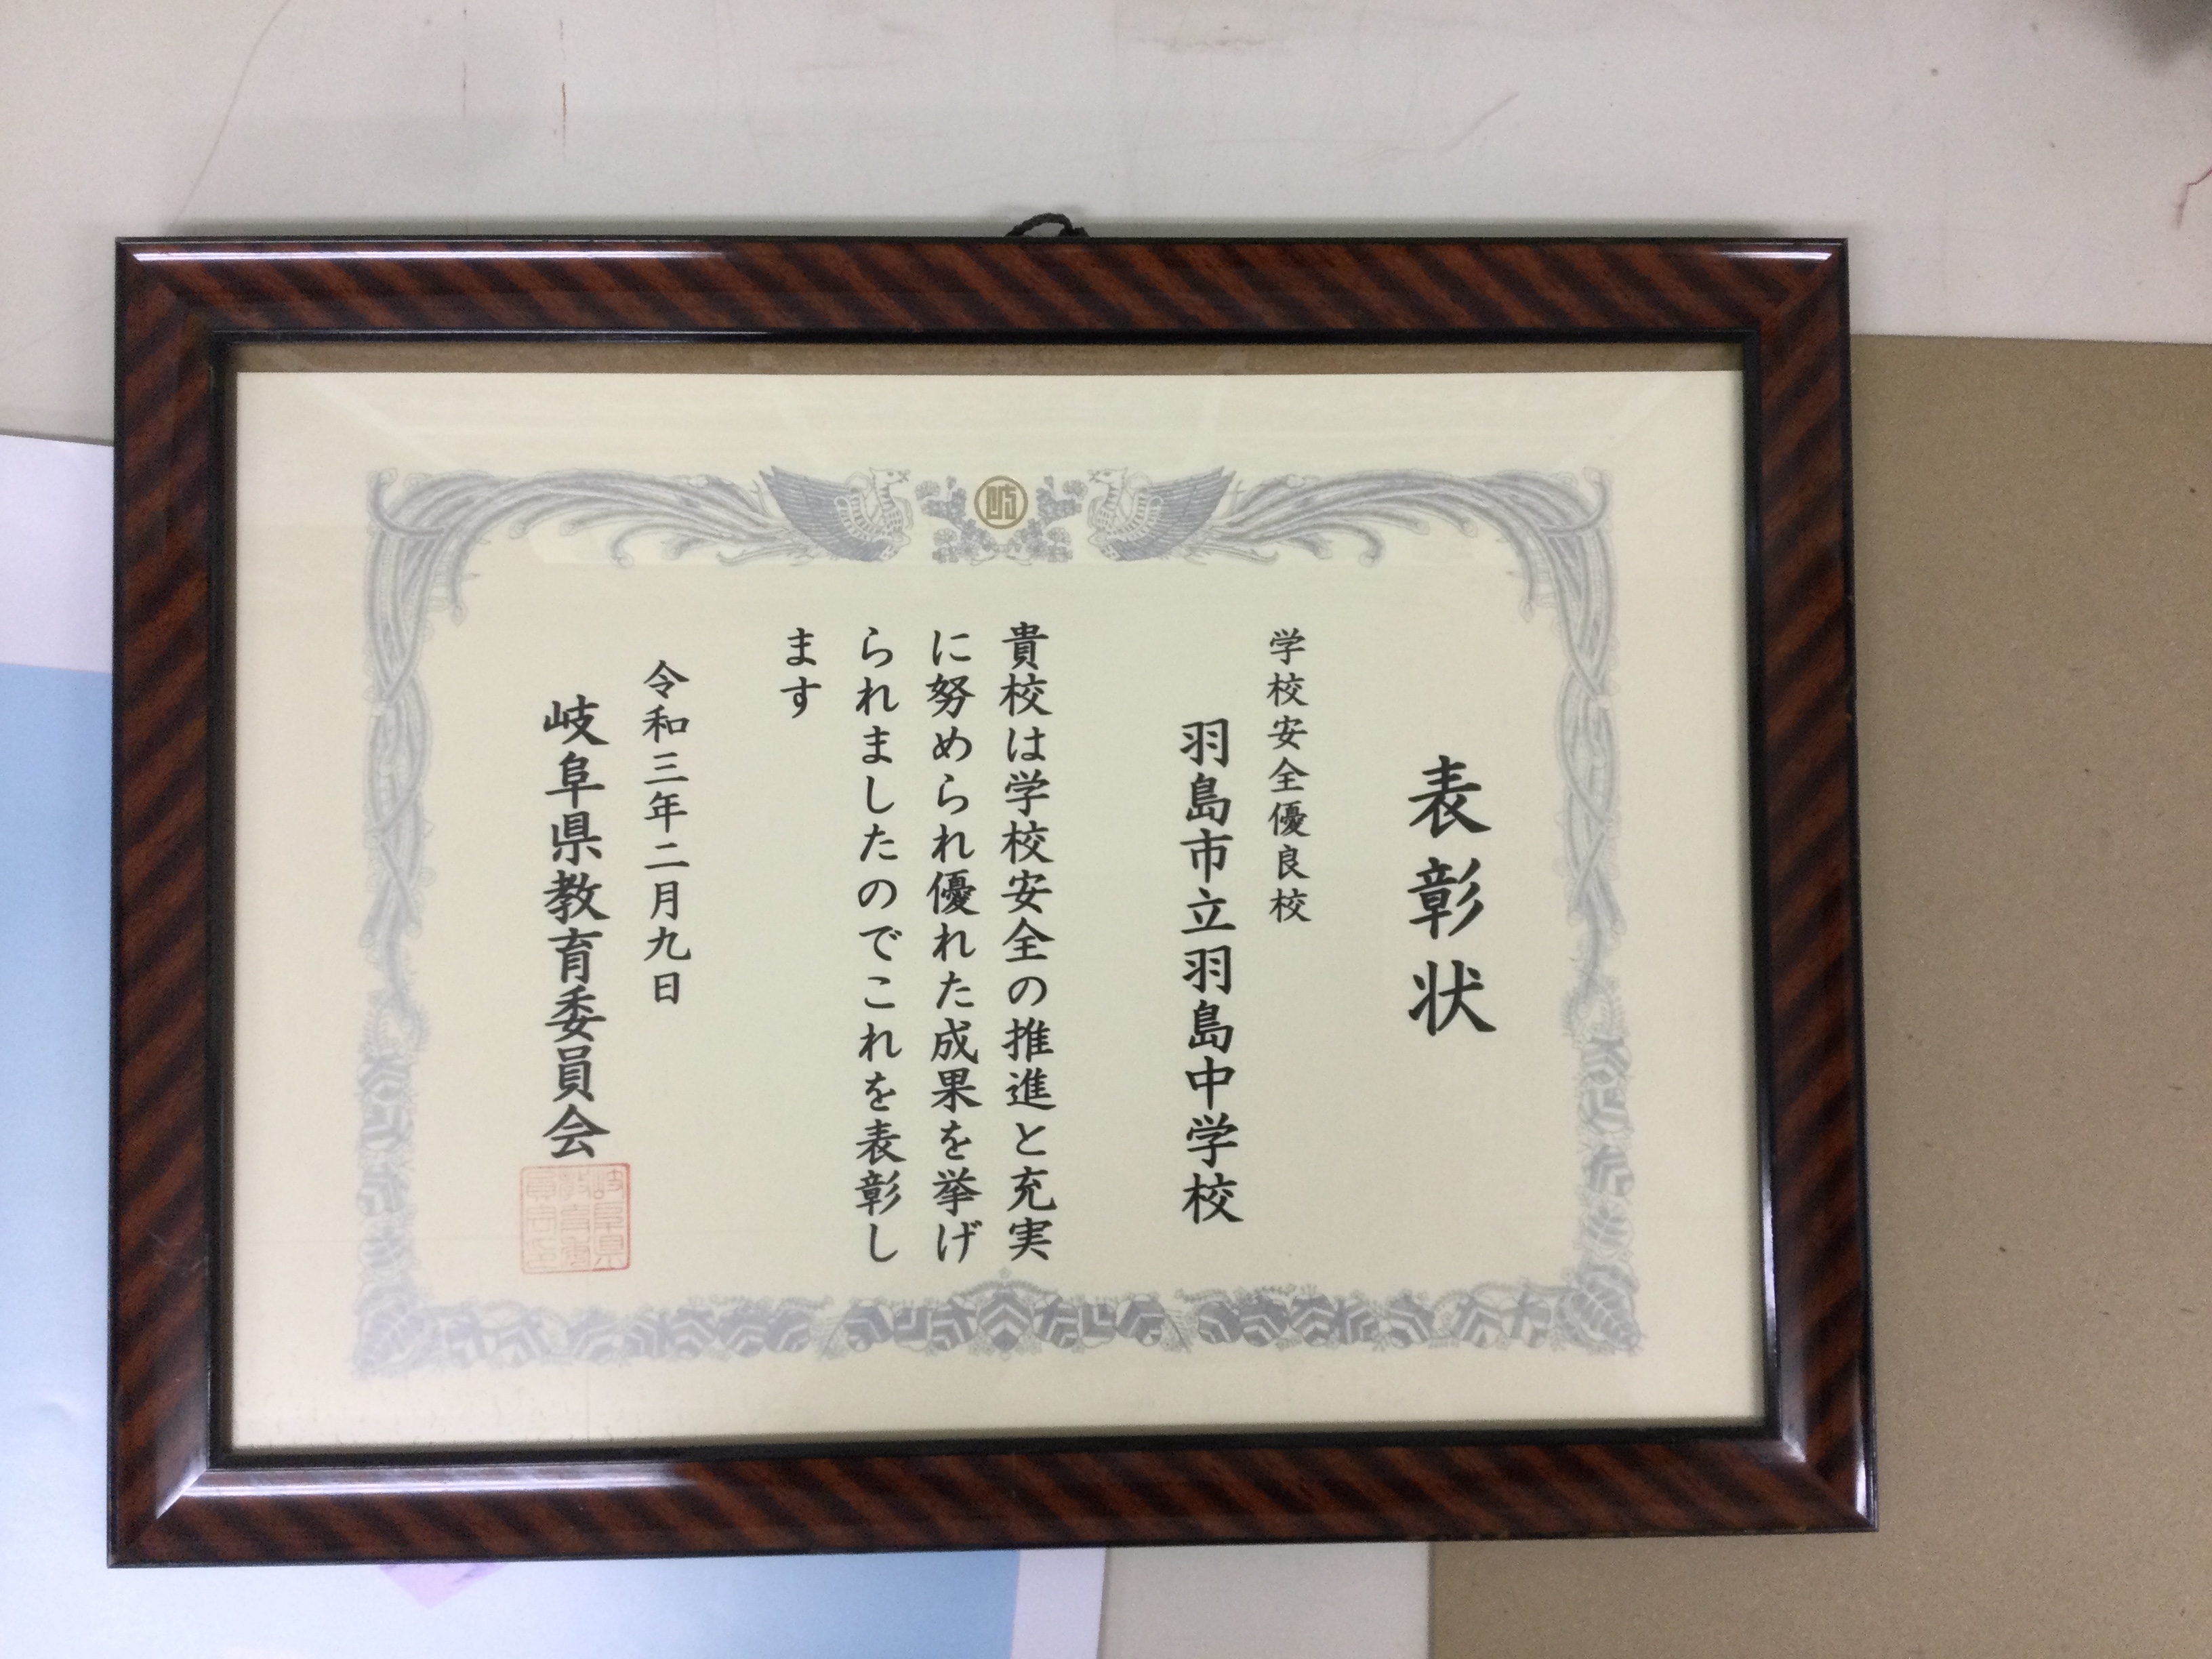 表彰状
学校安全優良校
羽島市立羽島中学校
貴校は学校安全の推進と充実
に努められ優れた成果を挙げ
られましたのでこれを表彰し
ます
令和三年二月九日
岐阜県教育委員会